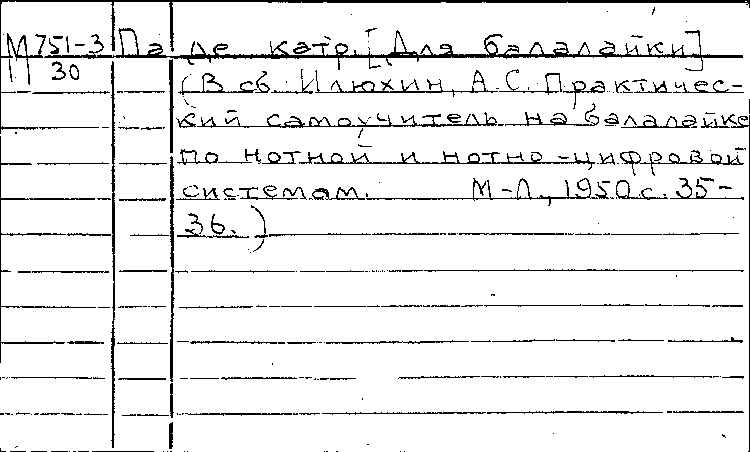 М 751-3 Па де катр. [Для балалайки]
30 (В сб.: Илюхин, А.С. Практичес-
кий самоучитель на балалайке
по нотной и нотно-цифровой
системам. М-Л., 1950 с. 35-
36.)